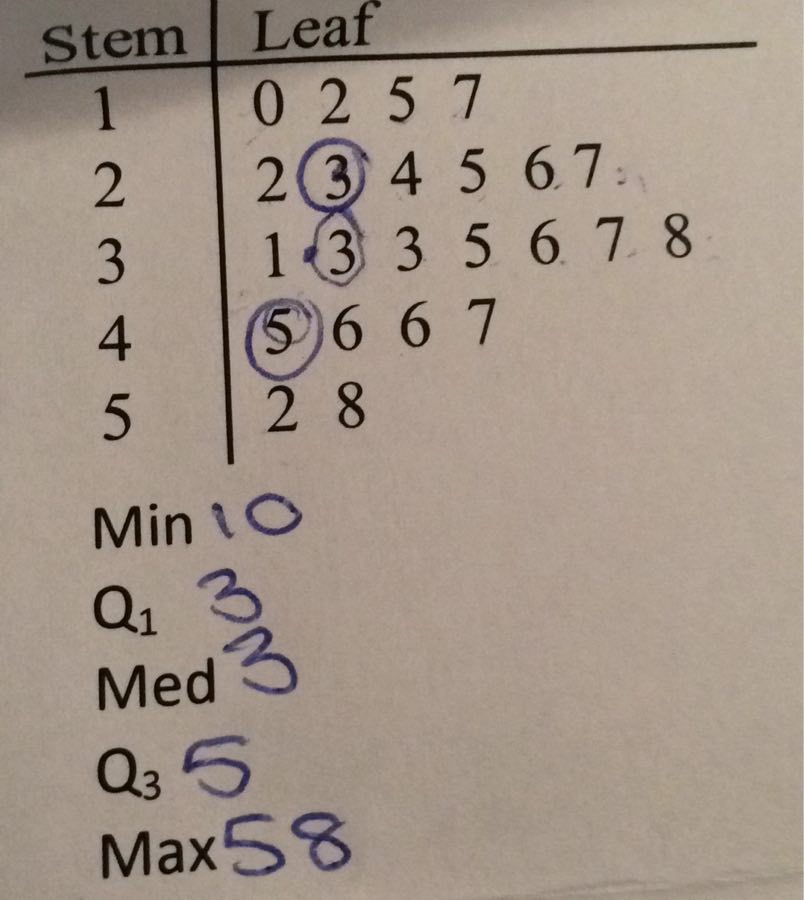 Stem Leaf
1 0 2 5 7
2 2 3 4 5 6 7
3 1 3 3 5 6 7 8
4 5 6 6 7
5 2 8
Min 10
Q₁ 3
Med 3
Q₃ 5
Max 58